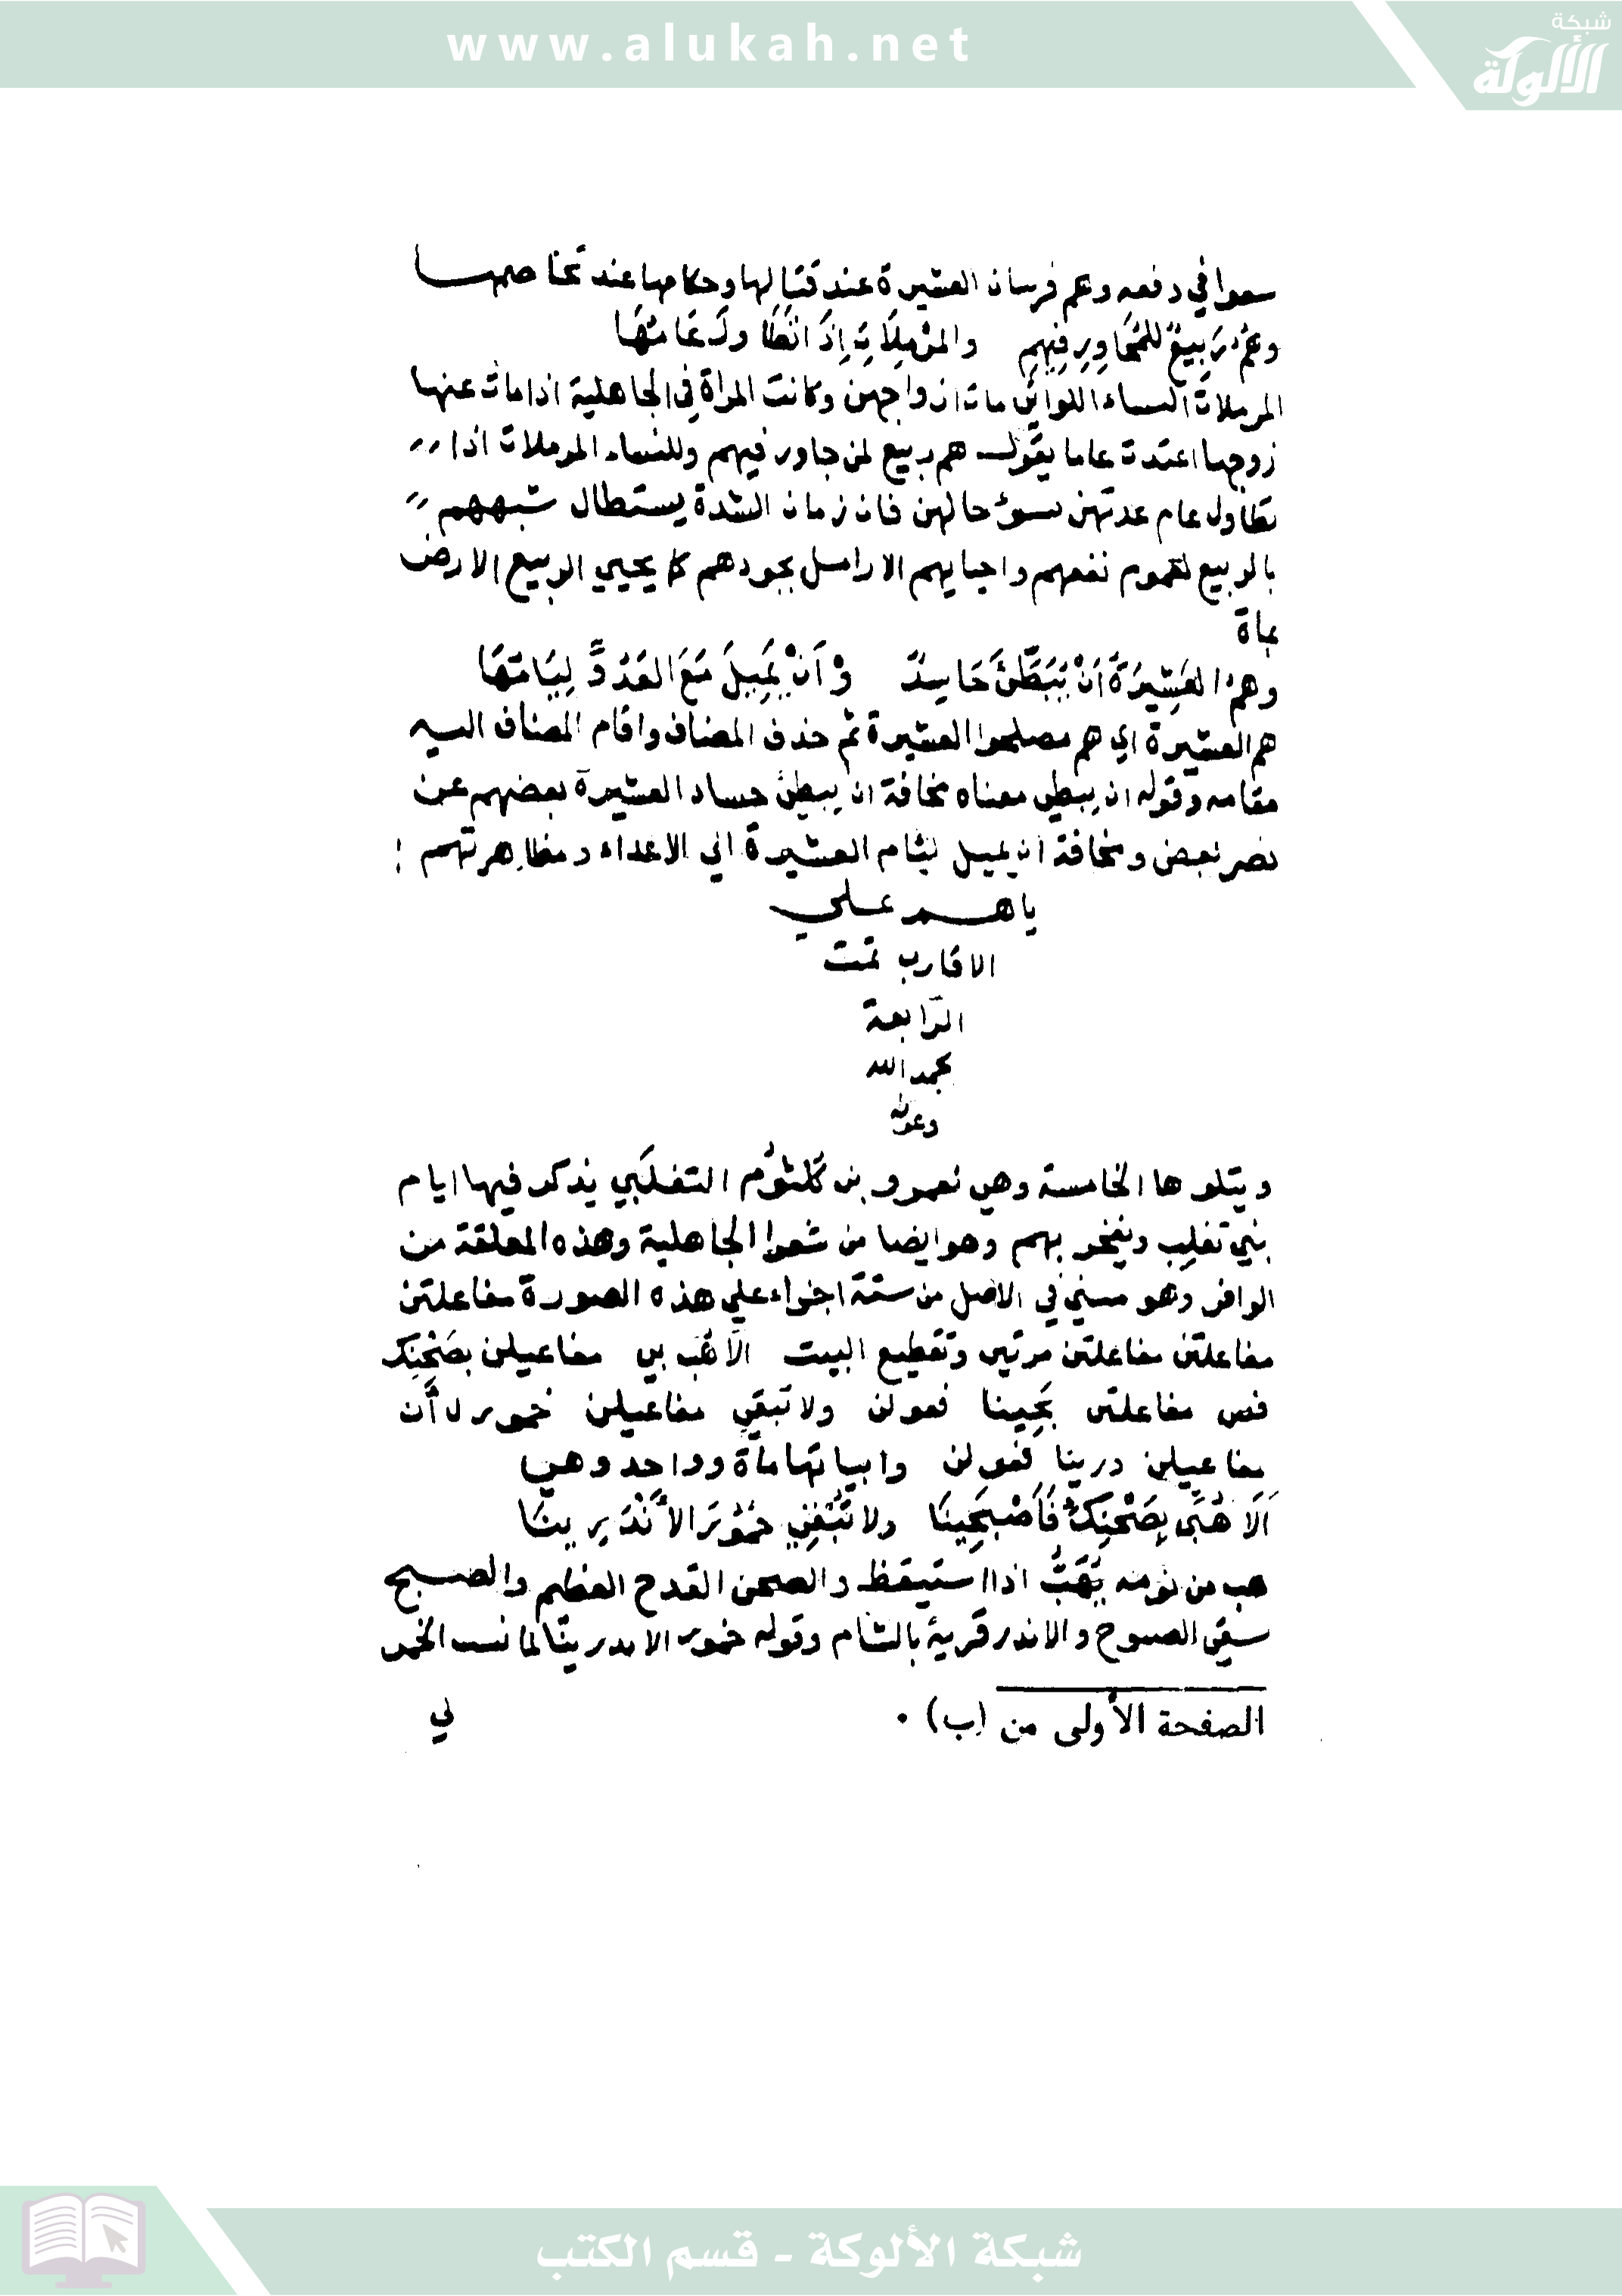 www.alukah.net
شبكة
الألوكة
سعوا في دفعه وهم فرسان العشيرة عند قتالها وحكامها عند تخاصمها
وهُمُ رَبِيعٌ للمُجَاوِرِ فِيهِمِ والمُرْمِلَاتِ إِذَا تَطَاوَلَ عَامُهَا
المرملات النساء اللواتي مات ازواجهن وكانت المراة في الجاهلية اذا مات عنها
زوجها اعتدت عاما يقول هم ربيع لمن جاور فيهم وللنساء المرملات اذا
تطاول عام عدتهن لسوء حالهن فان زمان الشدة يستطال شبههم
بالربيع لعموم نفعهم واحيايهم الارامل بجودهم كما يحيي الربيع الارض
بماة
وهمُ العَشِيرَةُ أَنْ يُبَطِّئَ حَاسِدٌ وْاَنْ يَمِيلَ مَعَ العَدُوِّ لِيَامُهَا
هم العشيرة اي هم مصلحوا العشيرة ثم حذف المضاف واقام المضاف اليه
مقامه وقوله ان يبطي معناه مخافة ان يبطئ حساد العشيرة بعضهم عن
نصر بعض ومخافة ان يميل لئام العشيرة الي الاعداء ومظاهرتهم
ياهم علي
الاقارب تمت
الرابعة
بحمد الله
وعونه
ويتلوها الخامسة وهي لعمرو بن كُلثُوم التغلَبي يذكر فيها ايام
بني تغلِب ويفخر بهم وهو ايضا من شعرا الجاهلية وهذه المعلقة من
الوافر وهو مبني في الاصل من ستة اجزاء علي هذه الصورة مفاعلتن
مفاعلتن مفاعلتن مرتين وتقطيع البيت الَا هُب بي مفاعيلن بصَحْنِك
فص مفاعلتن بَحِينا فعولن ولا تبقي مفاعيلن خمور لأن
مفاعيلن درينا فعولن وابياتها مأة وواحد وهي
اَلَا هُبِّي بِصَحْنِكِ فَاَصْبَحِينَا ولا تُبْقِي خُمُوْرَ الأَنْدَرِينَا
هب من نومه يَهُبُّ اذا استيقظ والصحن القدح العظيم والصبح
سقي الصبوح والاندر قرية بالشام وقوله خمور الاندرينا لما نسب الخمر
الصفحة الأولى من (ب) .
لي
شبكة الألوكة - قسم الكتب